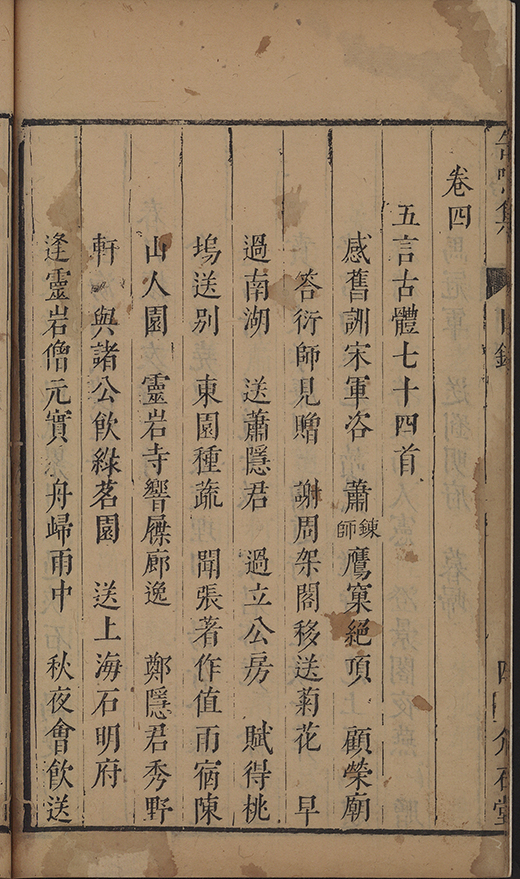 卷四
五言古體七十四首
感舊詶宋軍咨　蕭鍊師鷹窠絕頂　顧榮廟
荅衍師見贈　謝周架閣移送菊花　早
過南湖　送蕭隱君　過立公房　賦得桃
塢送別　東園種蔬　聞張著作值雨宿陳
山人園　靈岩寺響屧廊逸　鄭隱君秀野
軒　與諸公飲綠茗園　送上海石明府
逢靈岩僧元實　舟歸雨中　秋夜會飲送